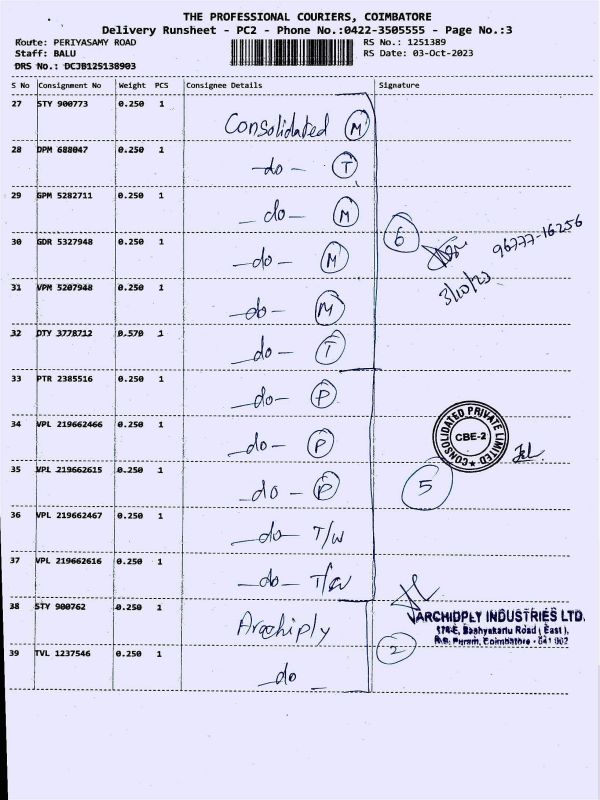 THE PROFESSIONAL COURIERS, COIMBATORE
Delivery Runsheet - PC2 - Phone No.:0422-3505555 - Page No.:3
Route: PERIYASAMY ROAD RS No.: 1251389
Staff: BALU RS Date: 03-Oct-2023
DRS No.: DCJB125138903
S No Consignment No Weight PCS Consignee Details Signature
27 STY 900773 0.250 1 Consolidated M
28 DPM 688047 0.250 1 -do- T
29 GPM 5282711 0.250 1 -do- M
6 96777-16256
30 GDR 5327948 0.250 1 -do- M
3/10/23
31 VPM 5207948 0.250 1 -do- M
32 DTY 3778712 0.570 1 -do- T
33 PTR 2385516 0.250 1 -do- P
34 VPL 219662466 0.250 1 -do- P
CONSOLIDATED PRIVATE LIMITED
CBE-2
35 VPL 219662615 0.250 1 -do- P
5
36 VPL 219662467 0.250 1 -do- T/W
37 VPL 219662616 0.250 1 -do- T/W
38 STY 900762 0.250 1 Arochiply
ARCHIDPLY INDUSTRIES LTD.
174-E, Bashyakarlu Road (East),
R.S. Puram, Coimbatore - 641 002
39 TVL 1237546 0.250 1 -do-
2